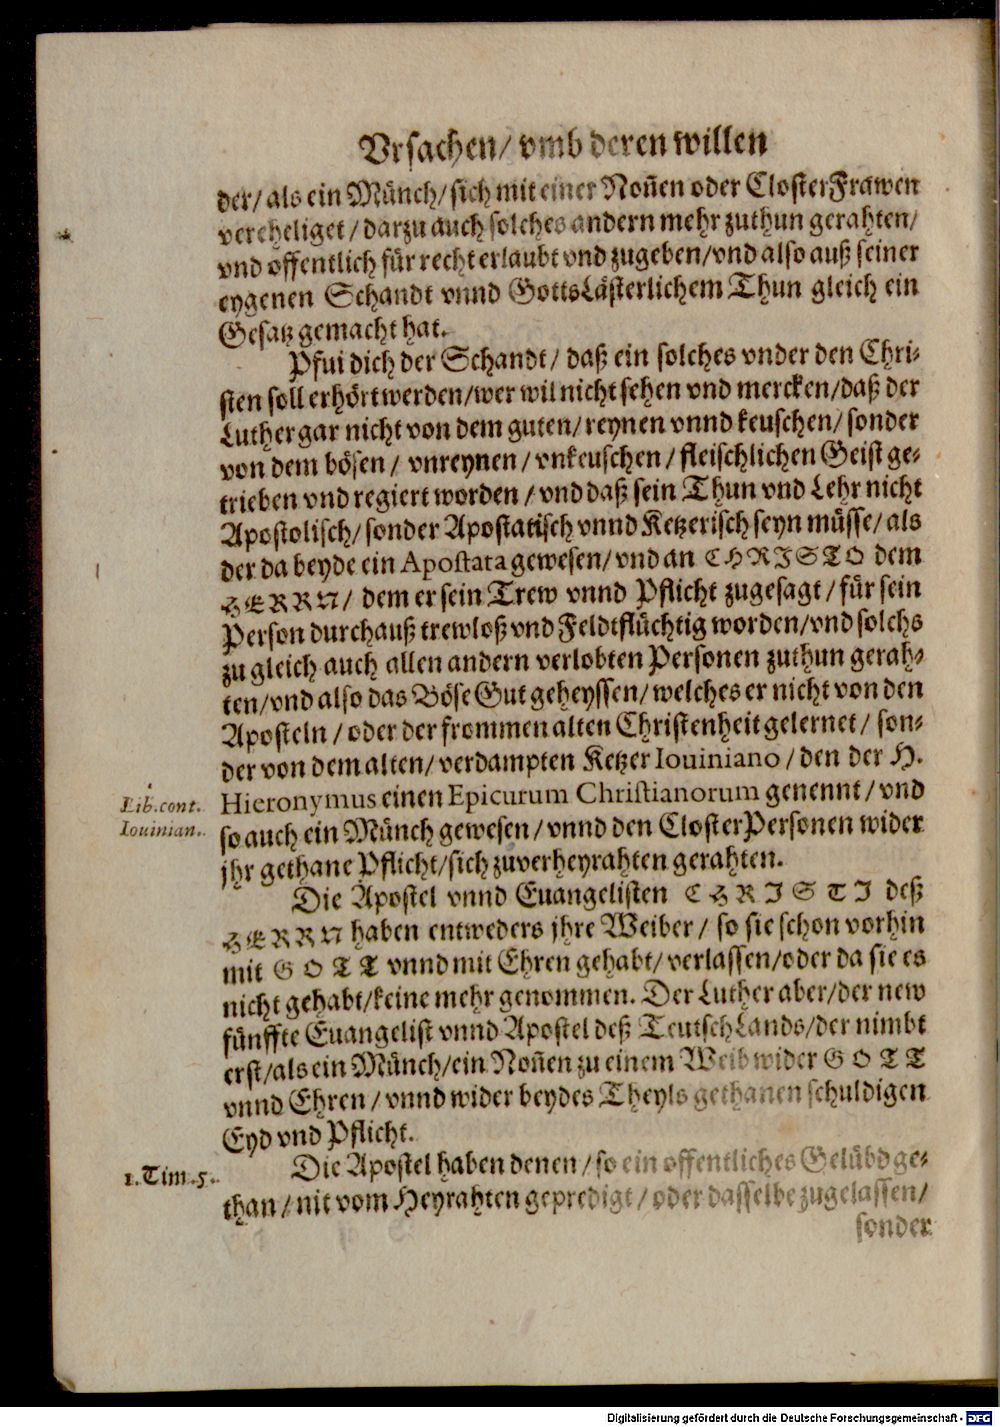 Vrsachen/ vmb deren willen
der/ als ein Münch/ sich mit einer Noñen oder ClosterFrawen
vereheliget/ darzu auch solches andern mehr zuthun gerahten/
vnd offentlich für recht erlaubt vnd zugeben/ vnd also auß seiner
eygenen Schandt vnnd GottsLästerlichem Thun gleich ein
Gesatz gemacht hat.
Pfui dich der Schandt/ daß ein solches vnder den Chri-
sten soll erhört werden/ wer wil nicht sehen vnd mercken/ daß der
Luther gar nicht von dem guten/ reynen vnnd keuschen/ sonder
von dem bösen/ vnreynen/ vnkeuschen/ fleischlichen Geist ge-
trieben vnd regiert worden/ vnd daß sein Thun vnd Lehr nicht
Apostolisch/ sonder Apostatisch vnnd Ketzerisch seyn müsse/ als
der da beyde ein Apostata gewesen/ vnd an CHRISTO dem
HERRN/ dem er sein Trew vnnd Pflicht zugesagt/ für sein
Person durchauß trewloß vnd Feldtflüchtig worden/ vnd solchs
zu gleich auch allen andern verlobten Personen zuthun gerah-
ten/ vnd also das Böse Gut geheyssen/ welches er nicht von den
Aposteln/ oder der frommen alten Christenheit gelernet/ son-
der von dem alten/ verdampten Ketzer Iouiniano/ den der H.
Lib. cont.
Iouinian.
Hieronymus einen Epicurum Christianorum genennt/ vnd
so auch ein Münch gewesen/ vnnd den ClosterPersonen wider
jhr gethane Pflicht/ sich zuverheyrahten gerahten.
Die Apostel vnnd Euangelisten CHRISTI deß
HERRN haben entweders jhre Weiber/ so sie schon vorhin
mit GOTT vnnd mit Ehren gehabt/ verlassen/ oder da sie es
nicht gehabt/ keine mehr genommen. Der Luther aber/ der new
fünffte Euangelist vnnd Apostel deß TeutschLands/ der nimbt
erst/ als ein Münch/ ein Noñen zu einem Weib wider GOTT
vnnd Ehren/ vnnd wider beydes Theyls gethanen schuldigen
Eyd vnd Pflicht.
1. Tim. 5.
Die Apostel haben denen/ so ein offentliches Gelübd ge-
than/ nit vom Heyrahten gepredigt/ oder dasselbe zugelassen/
sonder
Digitalisierung gefördert durch die Deutsche Forschungsgemeinschaft - DFG